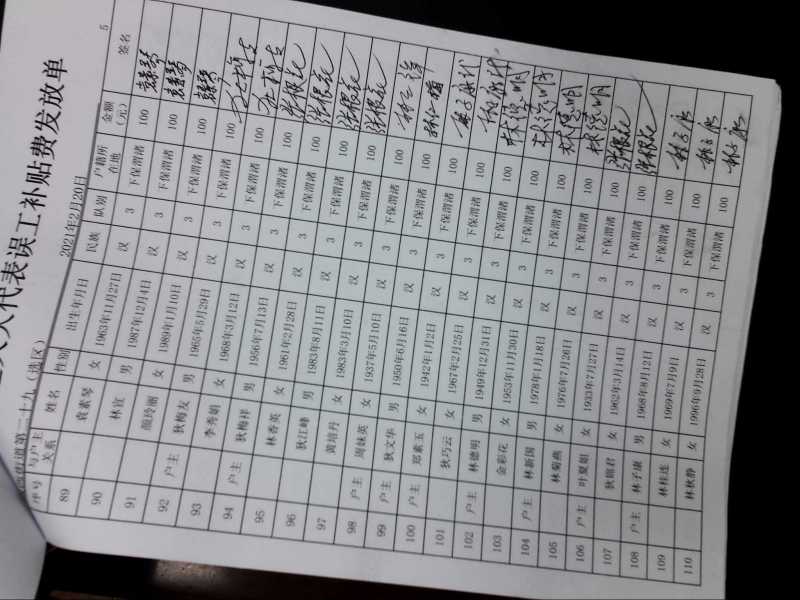 大代表误工补贴费发放单
街道第二十九（选区） 2021年2月20日 5
序号 与户主关系 姓名 性别 出生年月日 民族 队别 户籍所在地 金额（元） 签名
89 袁素琴 女 1963年11月27日 汉 3 下保渭渚 100 袁素琴
90 林宣 男 1987年12月4日 汉 3 下保渭渚 100 袁素琴
91 颜玲丽 女 1989年1月10日 汉 3 下保渭渚 100 袁素琴
92 户主 狄梅友 男 1965年5月29日 汉 3 下保渭渚 100
93 李秀娟 女 1968年3月12日 汉 3 下保渭渚 100
94 户主 狄梅祥 男 1956年7月13日 汉 3 下保渭渚 100 张根花
95 林香英 女 1961年2月28日 汉 3 下保渭渚 100 张根花
96 狄江峰 男 1983年8月11日 汉 3 下保渭渚 100 张根花
97 黄培丹 女 1983年3月10日 汉 3 下保渭渚 100 张根花
98 户主 周妹英 女 1937年5月10日 汉 3 下保渭渚 100
99 户主 狄文华 男 1950年6月16日 汉 3 下保渭渚 100
100 户主 郑素玉 女 1942年1月2日 汉 3 下保渭渚 100
101 狄巧云 女 1967年2月25日 汉 3 下保渭渚 100
102 户主 林德明 男 1949年12月31日 汉 3 下保渭渚 100 林德明
103 金彩花 女 1953年11月30日 汉 3 下保渭渚 100 林德明
104 户主 林新国 男 1978年1月18日 汉 3 下保渭渚 100 林德明
105 林菊燕 女 1976年7月26日 汉 3 下保渭渚 100 林德明
106 户主 叶夏娟 女 1933年7月27日 汉 3 下保渭渚 100 张根花
107 狄锦君 女 1962年3月14日 汉 3 下保渭渚 100 张根花
108 户主 林子康 男 1968年8月12日 汉 3 下保渭渚 100 林子康
109 林桂连 女 1969年7月9日 汉 3 下保渭渚 100 林子康
110 林秋静 女 1996年9月28日 汉 3 下保渭渚 100 林子康